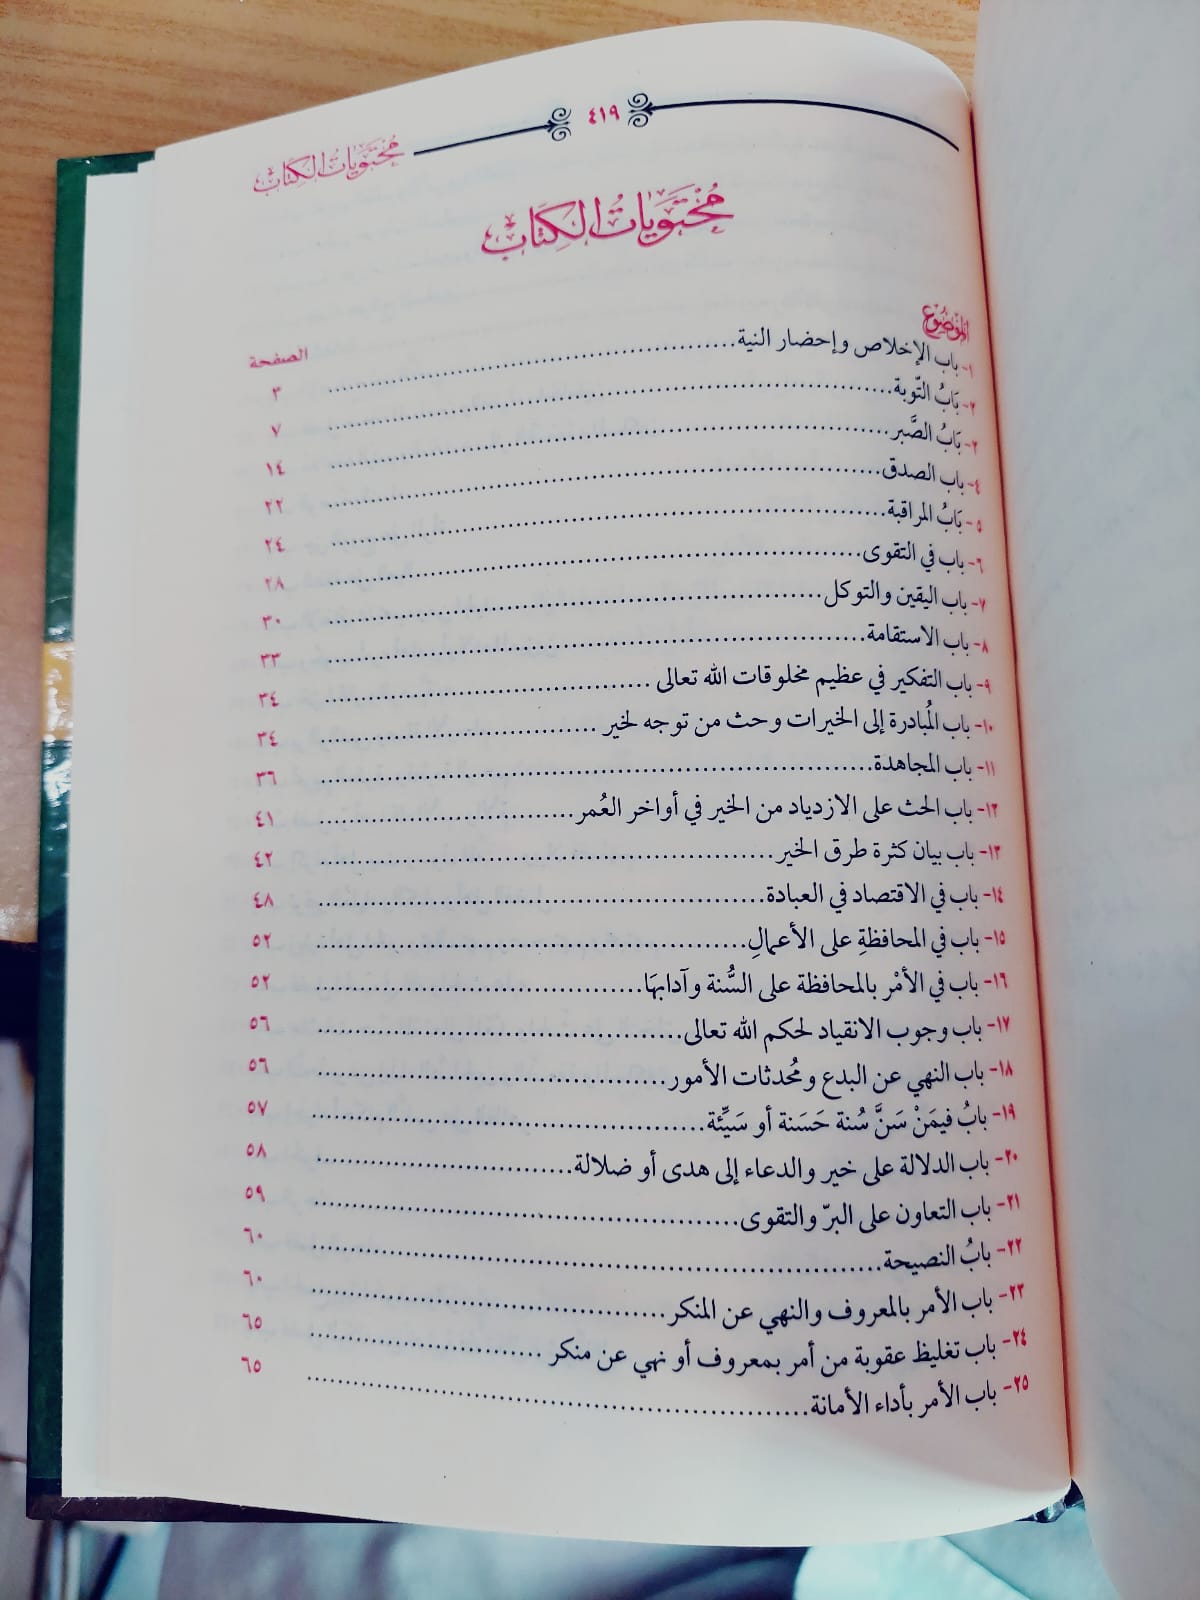 ٤١٩
محتويات الكتاب
مُحْتَوَيَاتُ الكِتَابِ
الموضوع الصفحة
١- باب الإخلاص وإحضار النية ٣
٢- بَابُ التّوبة ٧
٣- بَابُ الصَّبر ١٤
٤- باب الصدق ٢٢
٥- بَابُ المراقبة ٢٤
٦- باب في التقوى ٢٨
٧- باب اليقين والتوكل ٣٠
٨- باب الاستقامة ٣٣
٩- باب التفكير في عظيم مخلوقات الله تعالى ٣٤
١٠- باب المُبادرة إلى الخيرات وحث من توجه لخير ٣٤
١١- باب المجاهدة ٣٦
١٢- باب الحث على الازدياد من الخير في أواخر العُمر ٤١
١٣- باب بيان كثرة طرق الخير ٤٢
١٤- باب في الاقتصاد في العبادة ٤٨
١٥- باب في المحافظةِ على الأعمالِ ٥٢
١٦- باب في الأمْر بالمحافظة على السُّنة وآدابهَا ٥٢
١٧- باب وجوب الانقياد لحكم الله تعالى ٥٦
١٨- باب النهي عن البدع ومُحدثات الأمور ٥٦
١٩- بابُ فيمَنْ سَنَّ سُنة حَسَنة أو سَيِّئة ٥٧
٢٠- باب الدلالة على خير والدعاء إلى هدى أو ضلالة ٥٨
٢١- باب التعاون على البرّ والتقوى ٥٩
٢٢- بابُ النصيحة ٦٠
٢٣- باب الأمر بالمعروف والنهي عن المنكر ٦٠
٢٤- باب تغليظ عقوبة من أمر بمعروف أو نهي عن منكر ٦٥
٢٥- باب الأمر بأداء الأمانة ٦٥